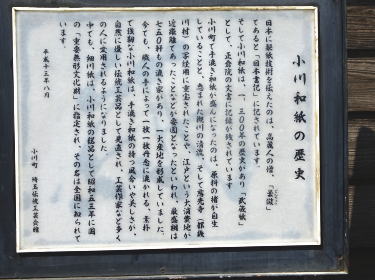 小川和紙の歴史
日本に製紙技術を伝えたのは、高麗人の僧、「曇徴」
であると「日本書記」に記されています。
そして小川和紙は、一、三〇〇年の歴史があり「武蔵紙」
として、正倉院の文書に記録が残されています
小川町で手漉き和紙が盛んになったのは、原料の楮が自生
していることと、恵まれた槻川の清流、そして慈光寺（都幾
川村）の写経用に重宝されたことや、江戸という大消費地が
近距離であったことなどが要因となったといわれ、最盛期は
七五〇軒もの漉き家があり、一大産地を形成していました。
今でも、職人の手によって一枚一枚丹念に漉かれる、素朴
で強靭な小川和紙は、手漉き和紙の持つ風合いや美しさが、
自然に優しい伝統工芸品として見直され、工芸作家など多く
の人に愛用されるようになりました。
中でも、細川紙は、小川和紙の銘品として昭和五三年に国
の「重要無形文化財」に指定され、その名は全国に知られて
います。
平成十三年八月
小川町　埼玉伝統工芸会館